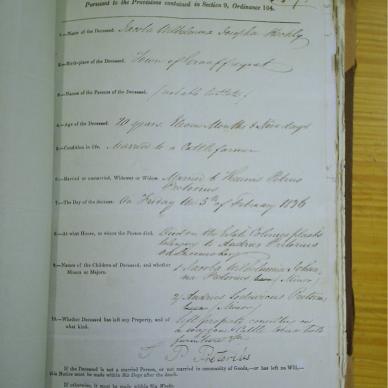 Pursuant to the Provisions contained in Section 9, Ordinance 104.
1.—Name of the Deceased. Jacoba Wilhelmina Josepha
2.—Birth-place of the Deceased. Town of Graaffreynet
3.—Names of the Parents of the Deceased. (not able to state)
4.—Age of the Deceased. 20 years Eleven Months & days
5.—Condition in life. Married to a Cattle farmer
6.—Married or unmarried, Widower or Widow. Married to Petrus
Pretorius
7.—The Day of the decease. On Friday the 5th of February 1836
8.—At what House, or where the Person died. Died on the
belonging to Andries Pretorius
9.—Names of the Children of Deceased, and whether
Minors or Majors.
1 Jacoba Wilhelmina Johan
na Pretorius (Minor)
2 Andries Pretorius
(Minor)
10.—Whether Deceased has left any Property, and of
what kind.
left property consisting in
a waggon Cattle
furniture &c
Pretorius
If the Deceased is not a married Person, or not married in community of Goods,—or has left no Will,—
this Notice must be made within Six Days after the death.
If otherwise, it must be made within Six Weeks.